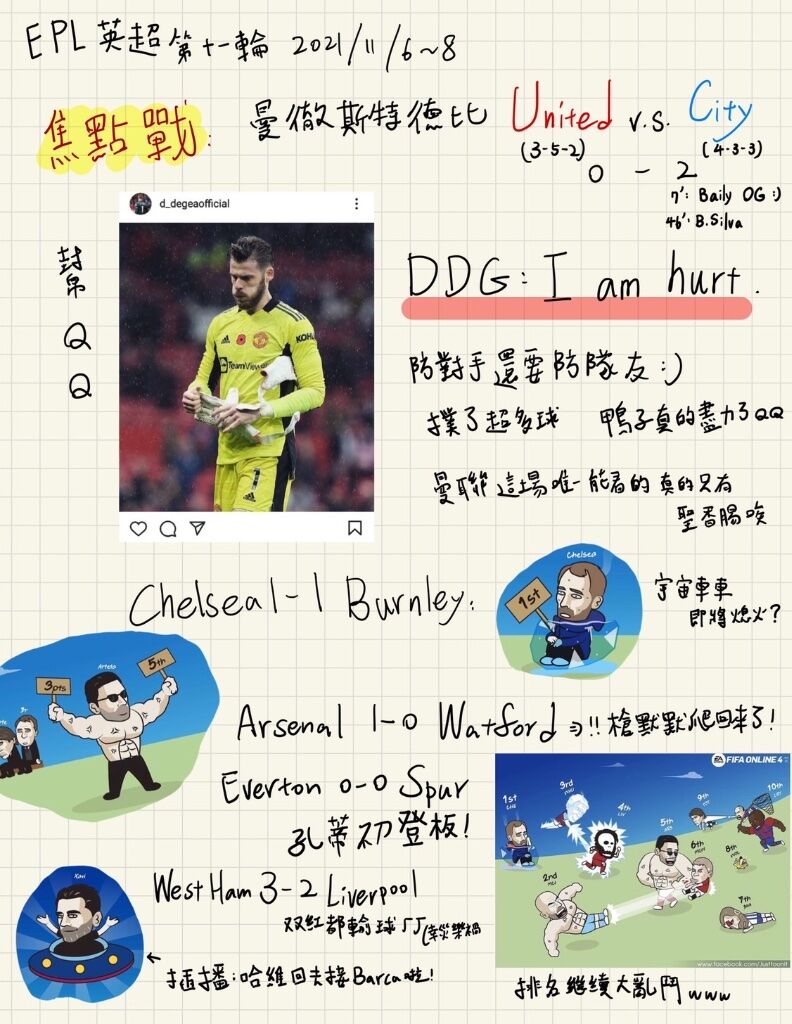 EPL 英超 第十一輪 2021/11/6~8
焦點戰: 曼徹斯特德比 United v.s. City
(3-5-2) (4-3-3)
0 - 2
7': Baily OG :)
46': B.Silva
d_degeaofficial
KOHL
TeamViewer
1
幫QQ
DDG: I am hurt.
防對手還要防隊友:)
撲了超多球 鴨子真的盡力了QQ
曼聯這場唯一能看的真的只有
聖香腸唉
Chelsea 1-1 Burnley:
Chelsea
1st
宇宙車車
即將熄火?
Arteta
3pts
5th
Arsenal 1-0 Watford ⇒!! 槍默默爬回來了!
Everton 0-0 Spur
孔蒂初登板!
EA FIFA ONLINE 4
1st
CHE
2nd
MCI
3rd
WHU
4th
LIV
5th
ARS
6th
MUN
7th
BHA
8th
WOL
9th
TOT
10th
CRY
www.facebook.com/Justtoonit
West Ham 3-2 Liverpool
双紅都輸球ㄏㄏ(幸災樂禍
Xavi
← 插播:哈維回去接Barca啦!
排名繼續大亂鬥www